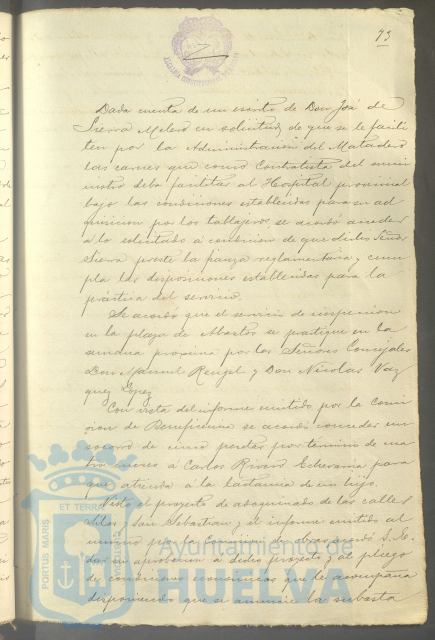 73
Dada cuenta de un escrito de Don José de
Sierra Melero en solicitud de que se le facili
ten por la Administracion del Matadero
las carnes que como Contratista del sumi
nistro debe facilitar al Hospital provincial
bajo las condiciones establecidas para su ad
quisicion por los tablajeros, se acordó acceder
a lo solicitado á condicion de que dicho Señor
Sierra preste la fianza reglamentaria y cum
pla las disposiciones establecidas para la
práctica del servicio.
Se acordó que el servicio de inspeccion
en la plaza de Abastos se practique en la
semana proxima por los Señores Concejales
Don Manuel Rengel y Don Nicolas Vaz
quez Lopez
Con vista del informe emitido por la Comi
sion de Beneficencia se acordó conceder un
socorro de cinco pesetas por término de cua
tro meses á Carlos Rivero Echevarria para
que atienda á la lactancia de un hijo.
Visto el proyecto de adoquinado de las calles
y San Sebastian y el informe emitido al
mismo por la Comision de obras acordó S. E.
dar su aprobacion a dicho proyecto y al pliego
de condiciones economicas que le acompaña
disponiendo que se anuncie la subasta
PORTUS MARIS
ET TERRAE
CUSTODIA
Ayuntamiento de
HUELVA